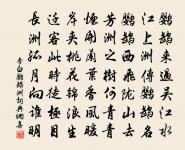 鸚鵡來過吳江水
江上洲傳鸚鵡名
鸚鵡西飛隴山去
芳洲之樹何青青
煙開蘭葉香風暖
岸夾桃花錦浪生
遷客此時徒極目
長洲孤月向誰明
李白鸚鵡洲